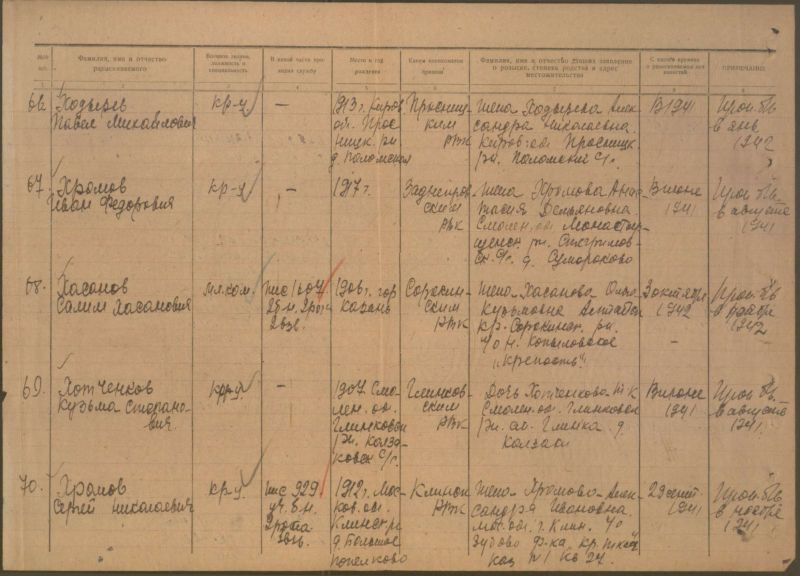 Фамилия, имя и отчество разыскиваемого
Воинское звание, должность и специальность
В какой части проходил службу
Место и год рождения
Каким военкоматом призван
Фамилия, имя и отчество подавшего заявление о розыске, степень родства и адрес местожительства
С какого времени
ПРИМЕЧАНИЕ
66. Ходырев
Павел Михайлович
кр-ц
—
1913 г. Киров.
об. Прос-
ницк. рн
д. Поломская
Просниц-
ким
РВК
Жена Ходырева Алек-
сандра Николаевна
Киров. об. Просницк.
рн. Поломский с/с.
В 1941
Проп. б/в
в янв.
1942
67. Хромов
Иван Федорович
кр-ц
—
1917 г.
Заднепров-
ским
РВК
Жена Хромова Анас-
тасия Демьяновна
Смолен. об. Монастыр-
щенск. рн.
с/с. д. Сумароково
В июне
1941
Проп. б/в
в августе
1941
68. Хасанов
Салим Хасанович
мл. ком.
ппс 1607
2 рота
взв.
1906 г. гор
Казань
Сорокин-
ским
РВК
Жена Хасанова Ольга
Кузьмовна Алтайск
кр. Сорокинск. рн.
п/о Н. Копыловское
„Крепость"
3 октября
1942
—
Проп. б/в
1942
69. Хотченков
Кузьма Степано-
вич.
кр-ц
—
1907 Смо-
лен. об.
Глинковск
рн. Колза-
ковск с/с.
Глинков-
ским
РВК
Дочь Хотченкова
Смолен. об. Глинковск
рн. Глинка д.
Колзаки
В июне
1941
Проп. б/в
в августе
1941
70. Хромов
Сергей Николаевич
кр-ц
ппс 929
2 рота
взв.
1912 г. Мос-
ков. об.
Клинск. р
д Большое
Клинск
РВК
Жена Хромова Алек-
сандра Ивановна
Мос. об. г. Клин. п/о
Зубово ф-ка
каз №1 кв 27.
29 сент.
1941
Проп. б/в
в ноябре
1941